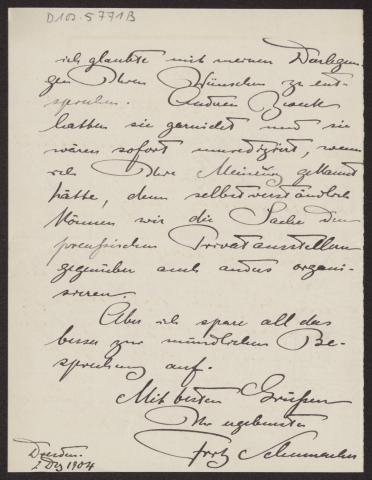 D102.5771B
ich glaubte mit meinen Darlegun-
gen Ihren Wünschen zu ent-
sprechen. Andren Zweck
hatten sie garnicht und sie
wären sofort unredigirt, wenn
ich Ihre Meinung gekannt
hätte, denn selbstverständlich
können wir die Sache den
preussischen Privatausstellern
gegenüber auch anders organi-
sieren.
Aber ich spare all das
besser zur mündlichen Be-
sprechung auf.
Mit besten Grüßen
Ihr ergebenster
Fritz Schumacher
Dresden.
2 Dez 1904